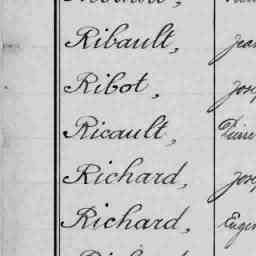 Ribault, Jean
Ribot, Jose
Ricault, Pierre
Richard, Jose
Richard, Eugen